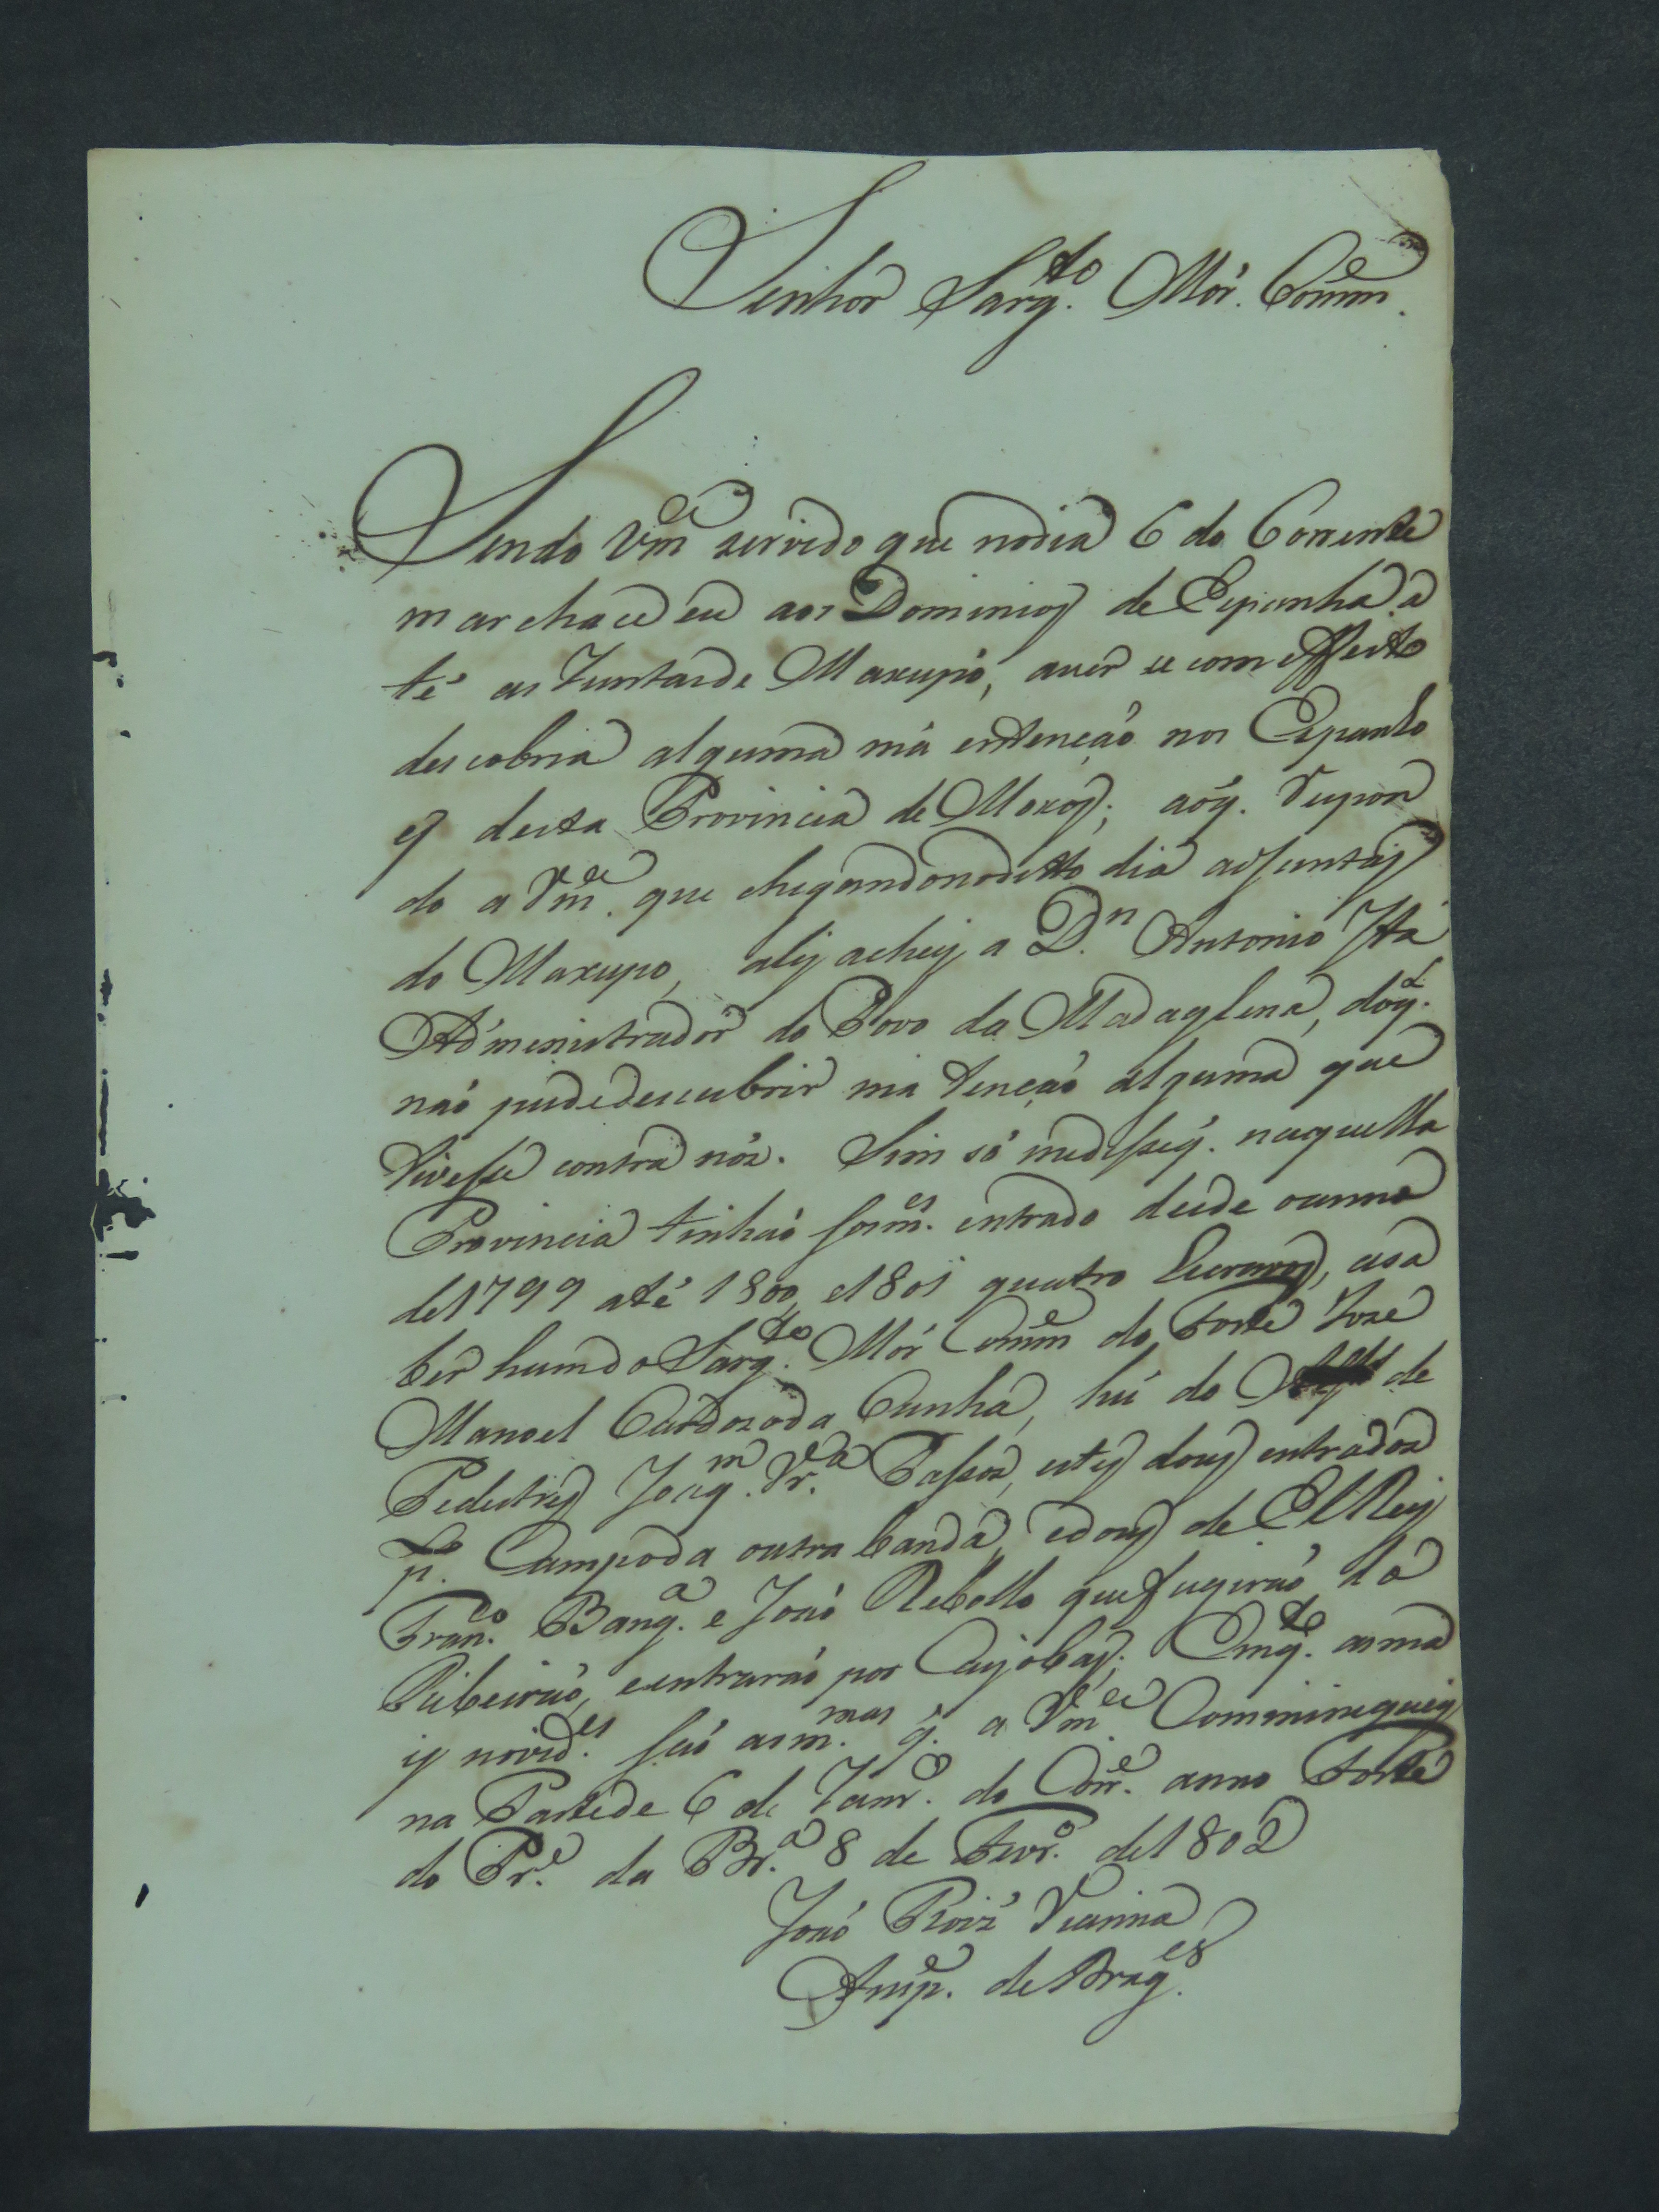 Senhor Sarg.to Mór. Comm.e
Sendo Vm.ce servido que nodia 6 do Corrente
marchace eu aos Dominios de Espanha a
té as Juntas de Maxupó, aver se com effeito
descobria alguma má entenção nos Espanho
es desta Provincia de Moxos; aoq. Respon
do a Vm.ce que chegandonoditto dia as Juntas
do Maxupo, aly achey a D.n Antonio Ita
Administrador do Povo da Madaglena, doq.l
não pudedescubrir má tenção alguma que
tivesse contra nós. Sim só medisseq. naquella
Provincia tinhão som.es entrado desde oanno
de1799 até 1800, e1801 quatro Escravos, asa
ber humdoSarg.to Mór Comm.e do Forte Joze
Manoel Cardozoda Cunha, hú do de
Pedestres Joaq.m Vr.ª Passos, estes dous entrados
p.lo Campoda outra banda, edous de ElRey
Fran.co Bang.a e João Rebello quefugirão do
Ribeirão, eentrarão por Cayobas; Emq.to asma
is novid.es são asm.mas q. a Vm.ce Comminiquey
na Partede 6 de Janr.o do Corr.e anno Forte
do Pr.e da Br.a 8 de Fevr.o de1802
João Roiz' Vianna
Ansp.e de Drag.es